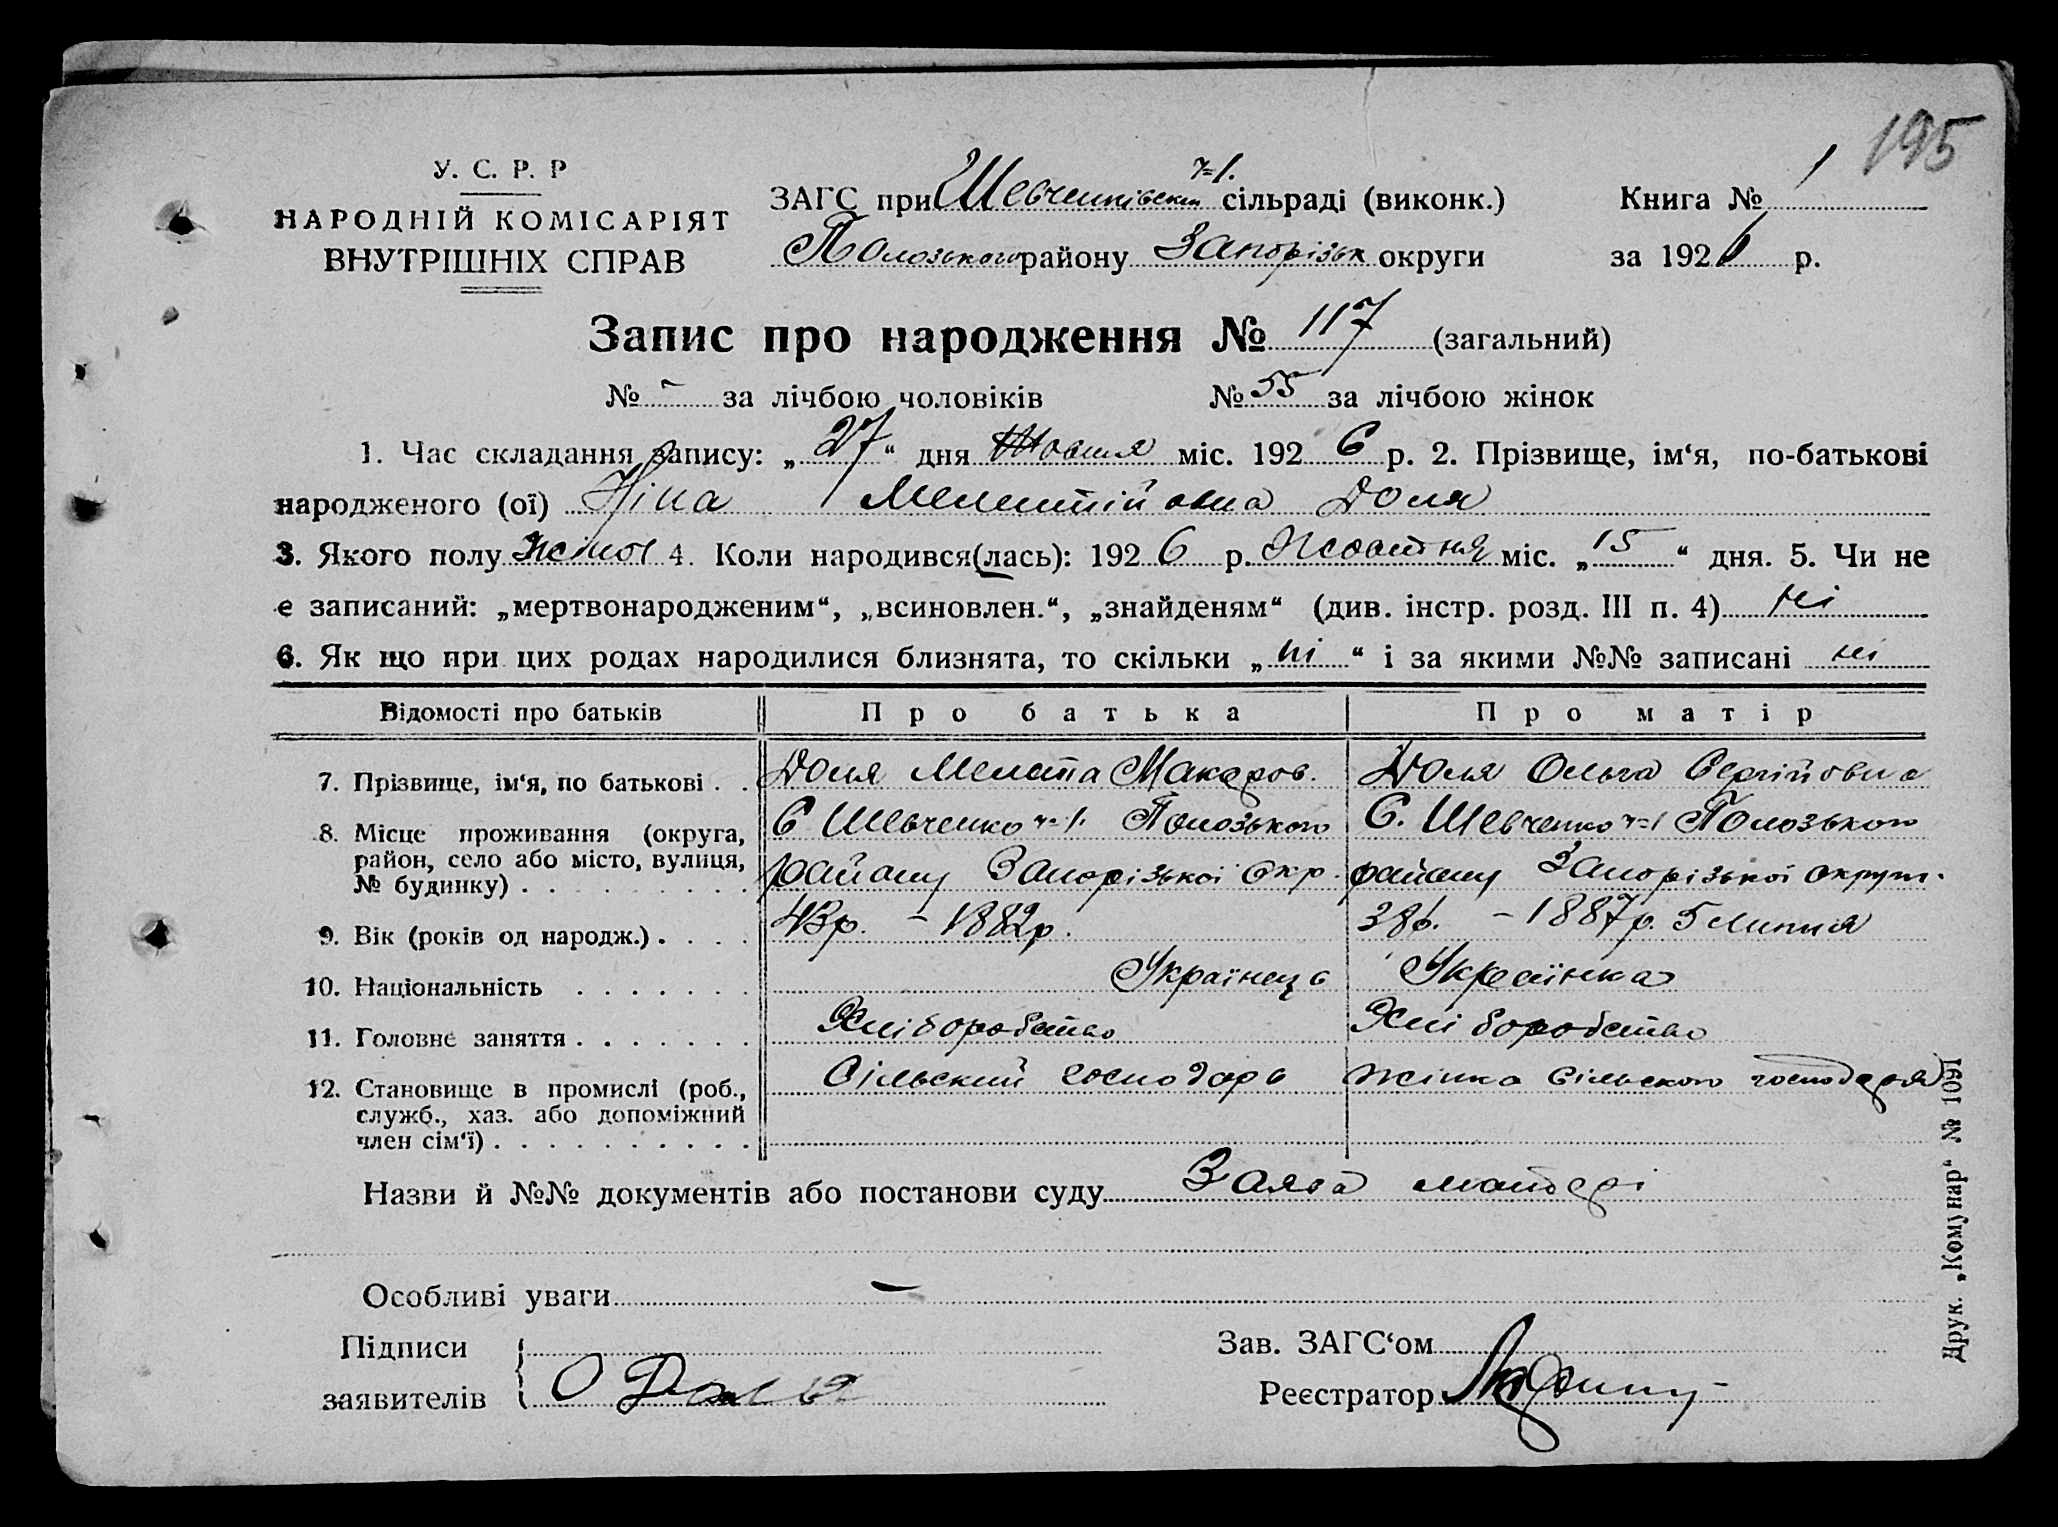 195
У. С. Р. Р
НАРОДНІЙ КОМІСАРІЯТ
ВНУТРІШНІХ СПРАВ
ЗАГС при Шевченківській ч=1. сільраді (виконк.)
Полозького району Запорізьк округи
Книга № 1
за 1926 р.
Запис про народження № 117 (загальний)
№ - за лічбою чоловіків № 55 за лічбою жінок
1. Час складання запису: „27“ дня Жовтня міс. 1926 р. 2. Прізвище, ім‘я, по-батькові
народженого (ої) Ніна Мелетійовна Доля
3. Якого полу жіноч 4. Коли народився(лась): 1926 р. Жовтня міс. „15“ дня. 5. Чи не
є записаний: „мертвонародженим“, „всиновлен.“, „знайденям“ (див. інстр. розд. III п. 4) ні
6. Як що при цих родах народилися близнята, то скільки „ні“ і за якими №№ записані ні
Відомості про батьків Про батька Про матір
7. Прізвище, ім‘я, по батькові . . Доля Мелета Макаров. Доля Ольга Сергійовна
8. Місце проживання (округа, район, село або місто, вулиця, № будинку) . . . . . . . .
С Шевченко ч=1. Полозького С. Шевченко ч=1 Полозького
району Запорізької окр. району Запорізької округи.
9. Вік (років од народж.) . . . . 43р. - 1882р. 38р. - 1887р. 5 липня
10. Національність . . . . . . . Українець Українка
11. Головне заняття . . . . . . . Хліборобство Хліборобство
12. Становище в промислі (роб., служб., хаз. або допоміжний член сім‘ї) . . . . . . . . . .
Сільський господарь жінка сільского господаря
Назви й №№ документів або постанови суду Заява матері
Особливі уваги -
Підписи
заявителів О Доля
Зав. ЗАГС‘ом
Реєстратор
Друк. „Комунар“ № 1091